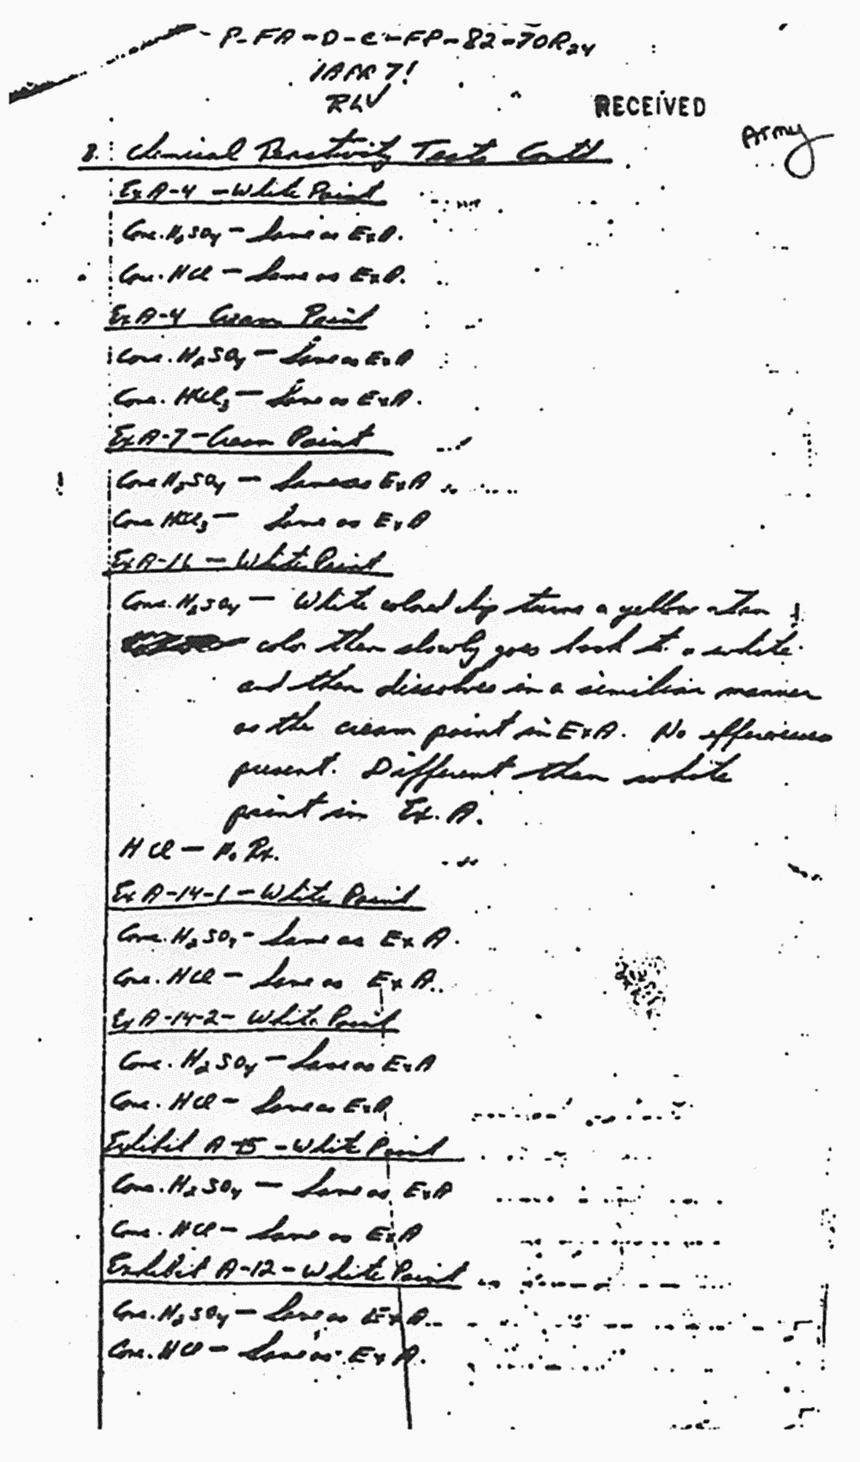 P-FA-D-C-FP-82-70R24
1APR71
RLV
RECEIVED
Army
8. Chemical Sensitivity Tests Cont'd
Ex A-4 - White Paint
Conc. H2SO4 - Same as Ex A.
Conc. HCl - Same as Ex A.
Ex A-4 Cream Paint
Conc. H2SO4 - Same as Ex A
Conc. HCl3 - Same as Ex A.
Ex A-7 - Cream Paint
Conc H2SO4 - Same as Ex A
Conc HCl3 - Same as Ex A
Ex A-11 - White Paint
Conc. H2SO4 - White colored chip turns a yellow-tan
color then slowly goes back to a white
and then dissolves in a similiar manner
as the cream paint in Ex A. No
present. Different then white
paint in Ex. A.
HCl - N. Rx.
Ex A-14-1 - White Paint
Conc. H2SO4 - Same as Ex A.
Conc. HCl - Same as Ex A.
Ex A-14-2 - White Paint
Conc. H2SO4 - Same as Ex A
Conc. HCl - Same as Ex A
Exhibit A-15 - White Paint
Conc. H2SO4 - Same as Ex A
Conc. HCl - Same as Ex A
Exhibit A-12 - White Paint
Conc. H2SO4 - Same as Ex A.
Conc. HCl - Same as Ex A.